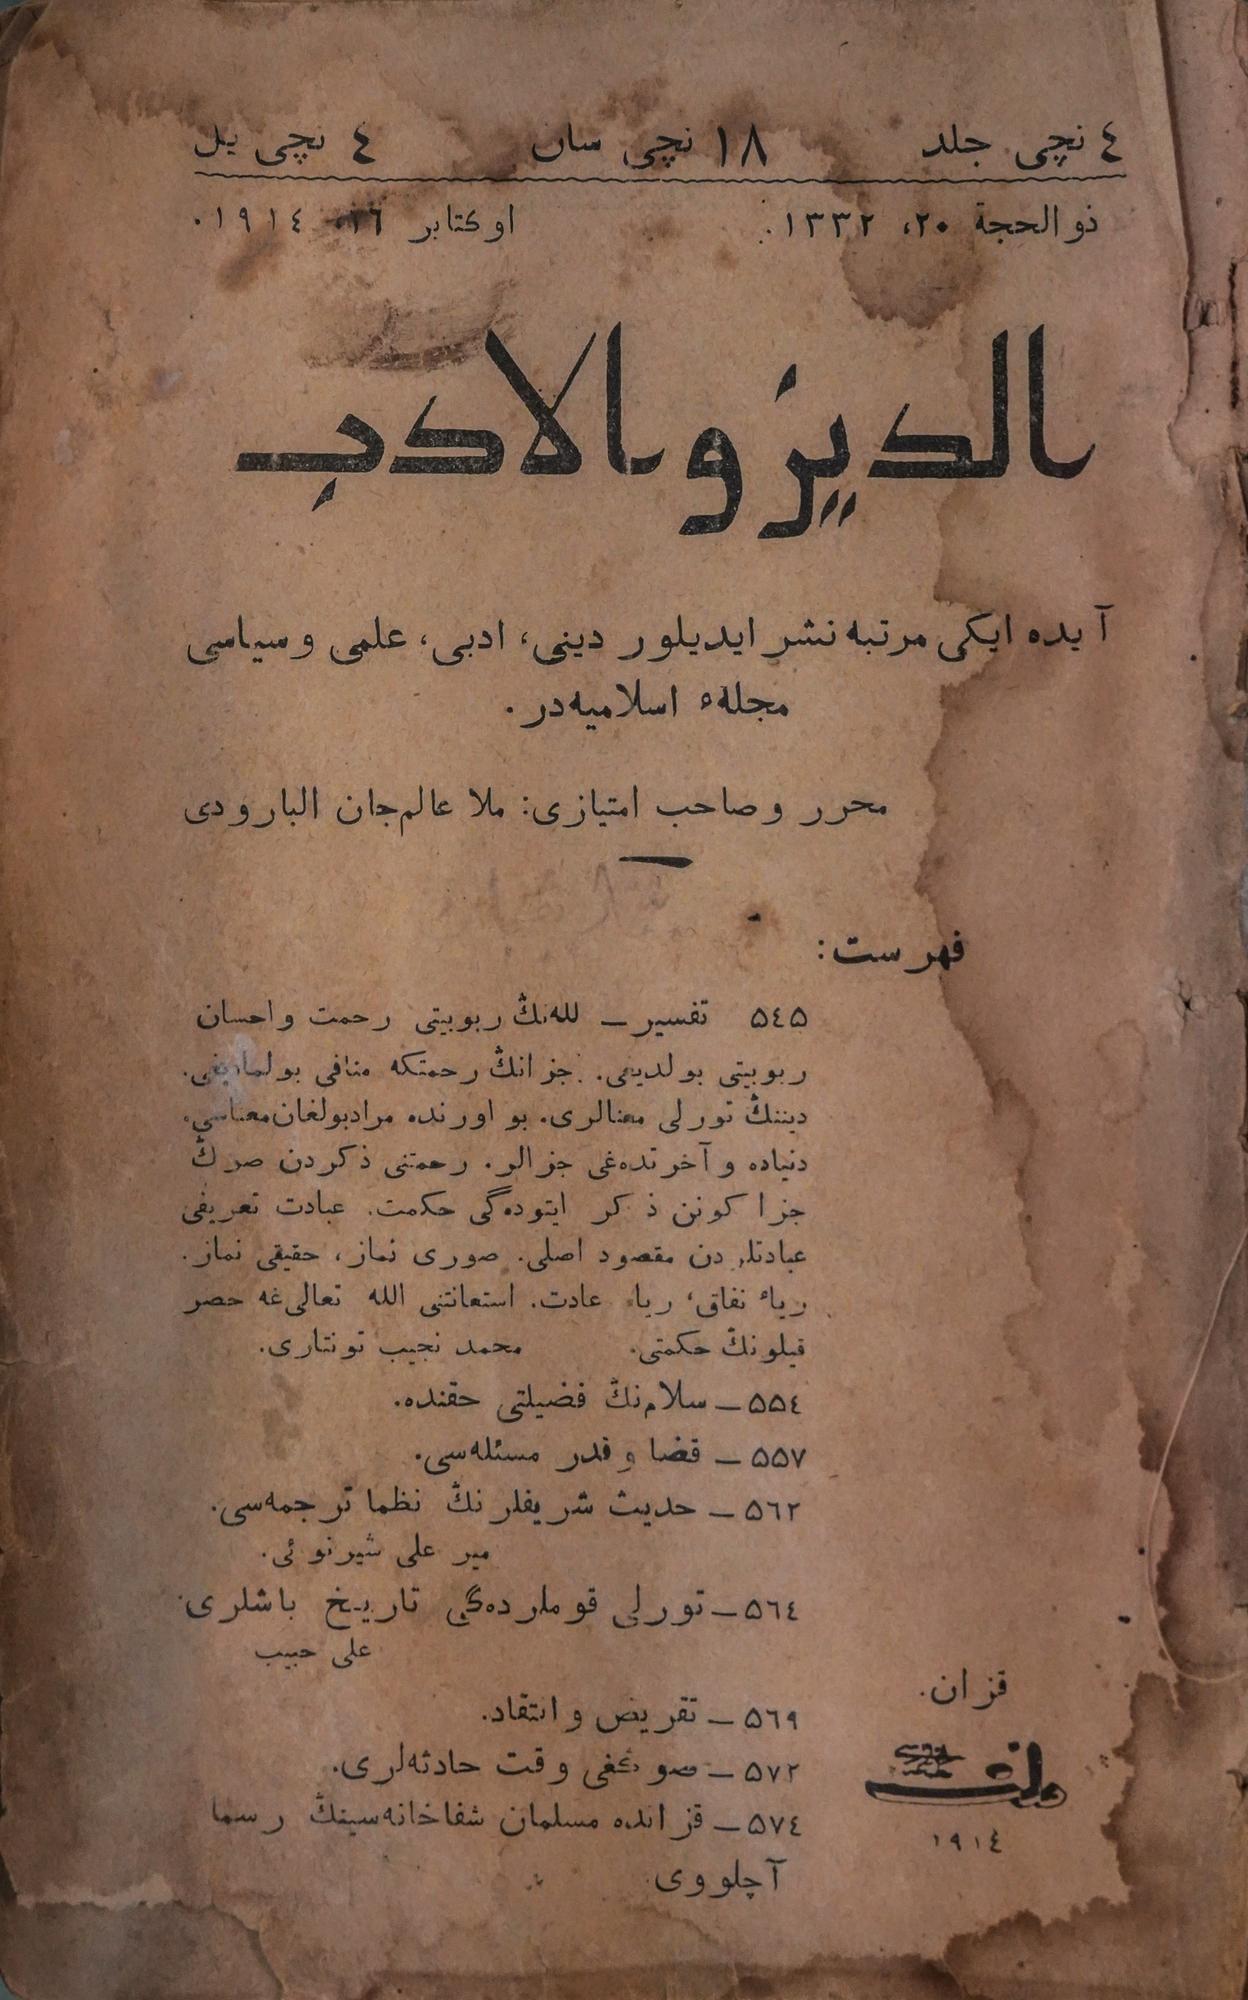 ٤ نچی جلد ١٨ نچی سان ٤ نچی یل
ذوالحجة ٢٠، ١٣٣٢. اوکتابر ١٦، ١٩١٤.
الدين والادب
آیده ایکی مرتبه نشر ایدیلور دینی، ادبی، علمی و سیاسی
مجلهء اسلامیه‌در.
محرر و صاحب امتیازی: ملا عالم‌جان البارودی
فهرست:
۵٤۵ تفسیر — الله‌نڭ ربوبیتی رحمت و احسان
ربوبیتی بولدیغی. جزانڭ رحمتکه منافی بولمادیغی.
دیننڭ تورلی معنالری. بو اورنده مرادبولغان معناسی.
دنیاده و آخرتده‌غی جزالر. رحمتنی ذکردن صوڭ
جزا کونن ذکر ایتوده‌گی حکمت. عبادت تعریفی
عبادتلردن مقصود اصلی. صوری نماز، حقیقی نماز.
ریاء نفاق، ریاء عادت. استعانتنی الله تعالی‌غه حصر
قیلونڭ حکمتی. محمد نجیب تونتاری.
۵۵٤ — سلام‌نڭ فضیلتی حقنده.
۵۵٧ — قضا و قدر مسئله‌سی.
۵٦٢ — حدیث شریفلرنڭ نظما ترجمه‌سی.
میر علی شیر نوائی.
۵٦٤ — تورلی قوملرده‌گی تاریخ باشلری
علی حبیب
۵٦٩ — تقریض و انتقاد.
۵٧٢ — صوڭغی وقت حادثه‌لری.
۵٧٤ — قزانده مسلمان شفاخانه‌سینڭ رسما
آچلووی
قزان.
ملت
١٩١٤